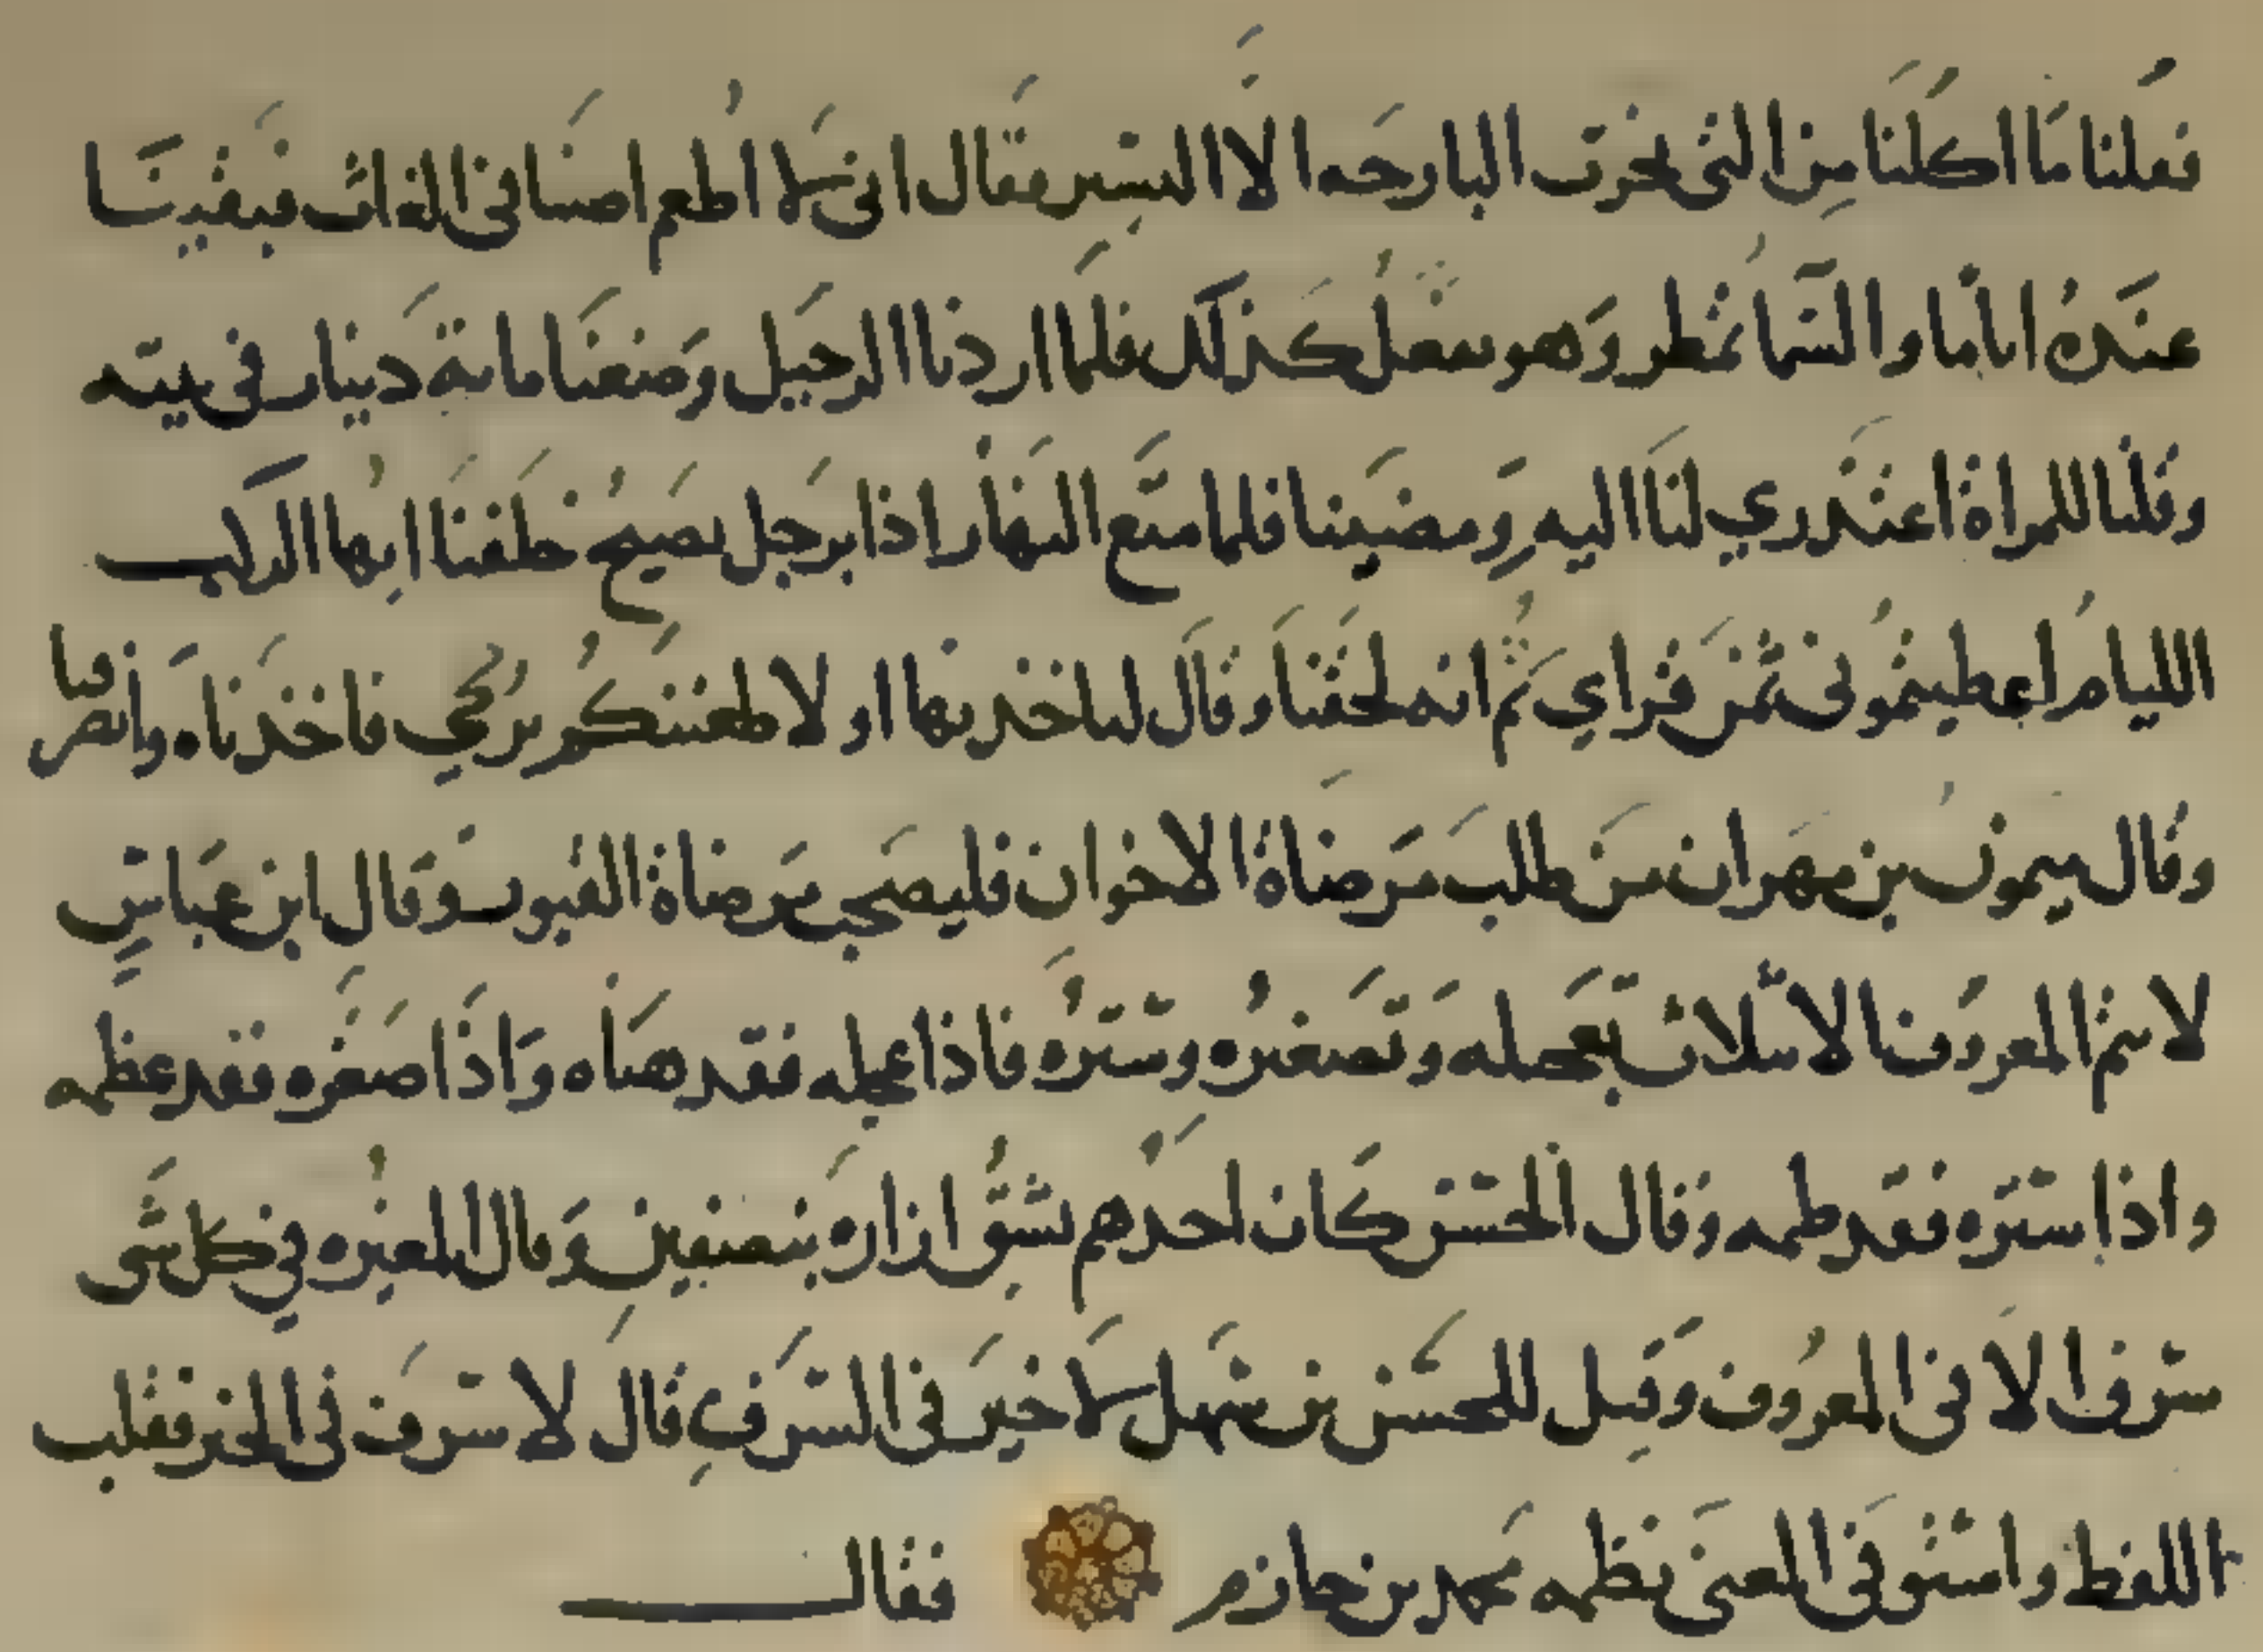 فقلنا ما اكلنا من التى نحرت البارحه الا اليسير فقال انى لا اطعم اضيافى الغاب فبقينا
عنده اياما والسما تمطر وهو يفعل كذلك فلما اردنا الرحيل وضعنا ماية دينار فى بيته
وقلنا للمراة اعتذري لنا اليه ومضينا فلما متع النهار اذا برجل يصيح خلفنا ايها الركب
الليام اعطيتمونى ثمن قراي ثم انه لحقنا وقال لتاخذنها او لاطعننكم برمحي فاخذناه وانصرفنا
وقال ميمون بن مهران من طلب مرضاة الاخوان فليصحب مرضاة القبور وقال ابن عباس
لا يتم المعروف الا بثلاث بتعجيله وتصغيره وستره فاذا عجله فقد هناه واذا صغره فقد عظمه
واذا ستره فقد طمه وقال الحسن كان احدهم يشق ازاره بنصفين وقال المغيره في كل شى
سرف الا فى المعروف وقيل للحسن بن سهل لا خير فى السرف قال لا سرف فى الخير فقلب
اللفظ واستوفى المعنى نظمه محمد بن حازم فقال